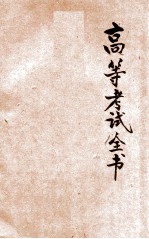 高等考试全书